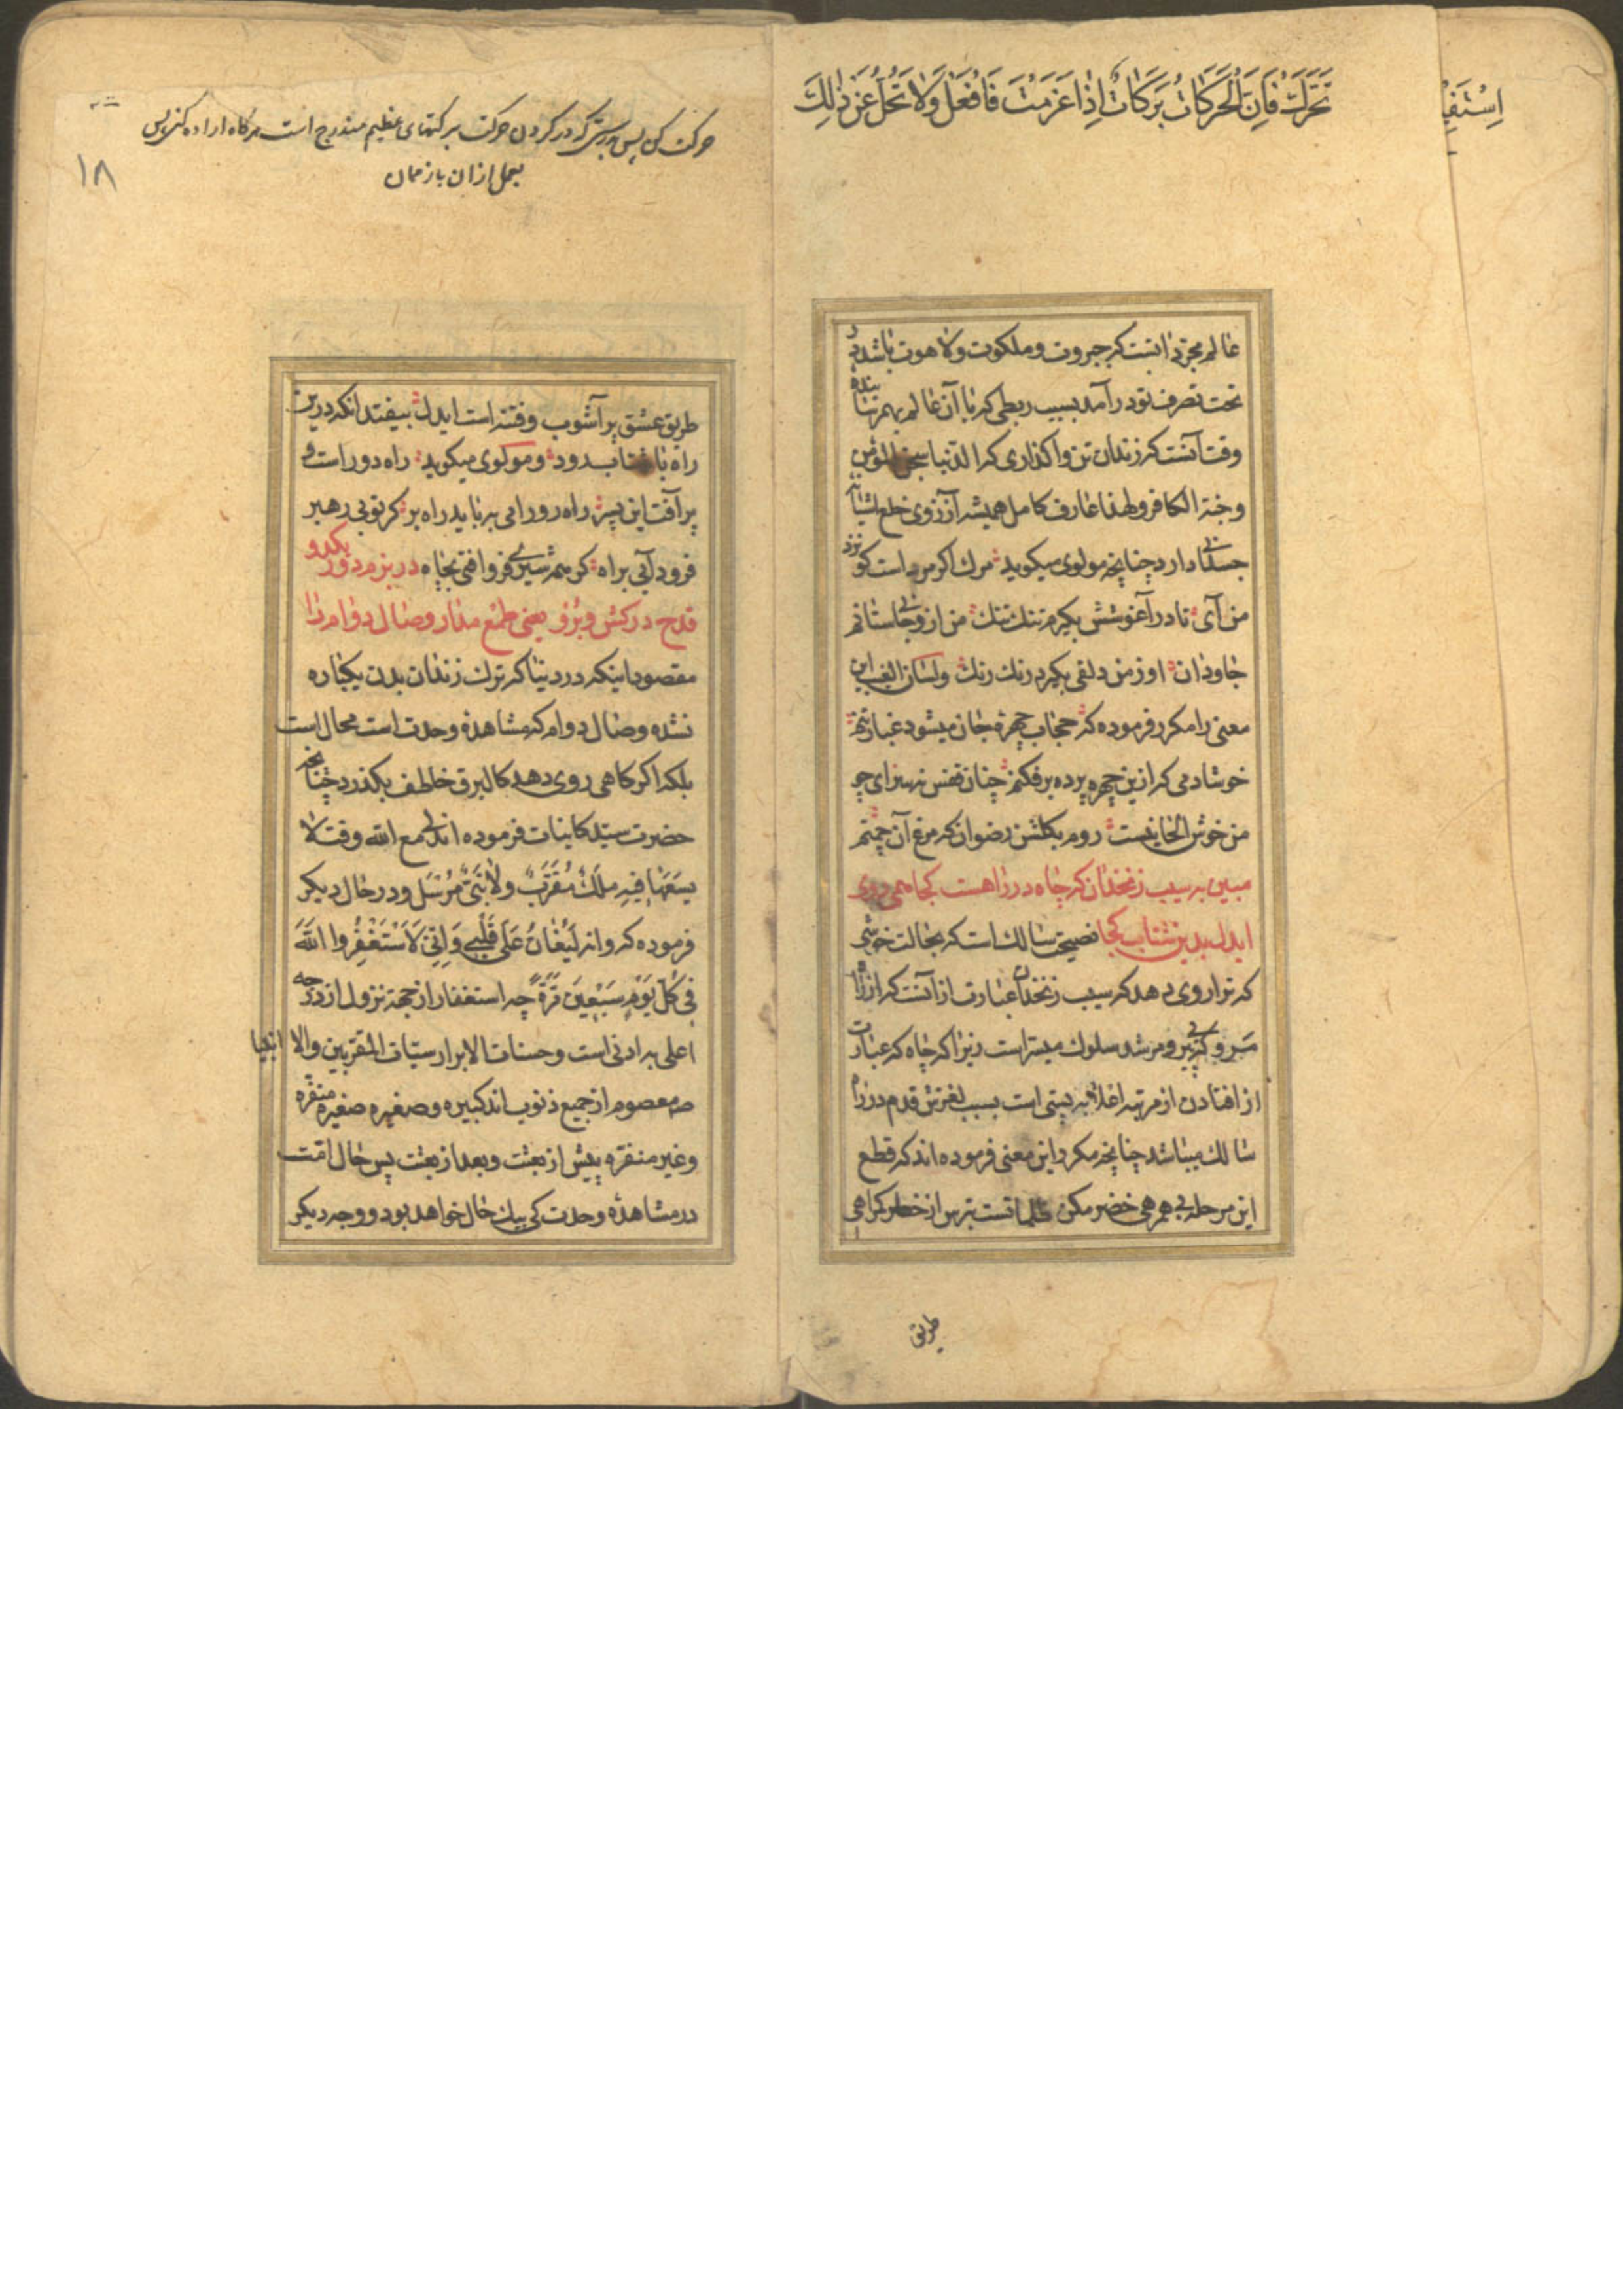 تَحَرَّكْ فَاِنَّ الْحَرَكَاتُ بَرَكَاتٌ اِذٰا عَزَمْتَ فَافْعَلْ وَلاٰ تَحُلْ عَنْ ذٰلِكَ
عالم مجرد انست كه جبروت و ملكوت و لاهوت باشد در
تحت تصرف تو درآمد بسبب ربطى كه با آن عالم بهم رسانيده
وقت آنست كه زندان تن واگذارى كه الدنيا سجن المؤمن
وجنة الكافر ولهذا عارف كامل هميشه آرزوى خلع لباس
جسمانى دارد چنانچه مولوى ميكويد مرك اكر مرد است كو نزد
من آى تا در آغوشش بكيرم تنك تنك من ازو جانى ستانم
جاودان او ز من دلقى بكيرد رنك رنك ولسان الغيب اين
معنى را مكرر فرموده كه حجاب چهرهٔ جان ميشود غبار تنم
خوشا دمى كه ازين چهره پرده برفكنم چنان قفس نه سزاى چو
من خوش الحانيست روم بكلشن رضوان كه مرغ آن چمنم
مبين به سيب زنخدان كه چاه در راهست كجا همى روى
ايدل بدين شتاب كجا نصيحت سالك است كه بحالت خوشى
كه ترا روى دهد كه سيب زنخدان عبارت از آنست كه از راه
مرو كه بى پير و مرشد سلوك ميسر است زيرا كه چاه كه عبارت
از افتادن از مرتبه اعلاى به پستى است بسبب لغزش قدم در راه
سالك ميباشد چنانچه مكرر اين معنى فرموده اند كه قطع
اين مرحله بى همرهى خضر مكن ظلماتست بترس از خطر كمراهى
طريق
حركت كن پس بدرستى كه در كردن حركت بركتهاى عظيم مندرج است هركاه اراده كنى پس
بعمل از ان باز ممان
١٨
طريق عشق پر آشوب و فتنه است ايدل بيفتد انكه درين
راه با شتاب رود و مولوى ميكويد راه دور است و
پر آفت اين پسر راه رو را مى ببايد راه بر كر تو بى رهبر
فرود آيى براه كر همه شيرى فرو افتى بچاه در بزم دور يكدو
قدح دركش و برو يعنى طمع مدار وصال دوام را
مقصود اينكه در دنيا كه ترك زندان بدن يكباره
نشده وصال دوام كه مشاهده وحدت است محال است
بلكه اكر كاهى روى دهد كالبرق خاطف بكذرد چنانچه
حضرت سيد كاينات فرموده اند لى مع الله وقت لا
يسعها فِيهِ مَلَكٌ مُقَرَّبٌ وَلاٰ نَبِىٌّ مُرْسَل و در حال ديكر
فرموده كه وانه لَيُغٰانُ عَلَى قَلْبِى وَاِنِّى لَاَسْتَغْفِرُوا اللّٰهَ
فِى كُلِّ يَوْمٍ سَبْعِينَ مَرَّةً چه استغفار از جهة نزول از درجه
اعلى به ادنى است و حسنات الابرار سيئات المقربين والا انبيا
معصوم از جميع ذنوب اند كبيره و صغيره صغيره منفره
وغير منفره پيش از بعثت و بعد از بعثت پس حال امت
در مشاهدهٔ وحدت كى بيك حال خواهد بود و وجه ديكر